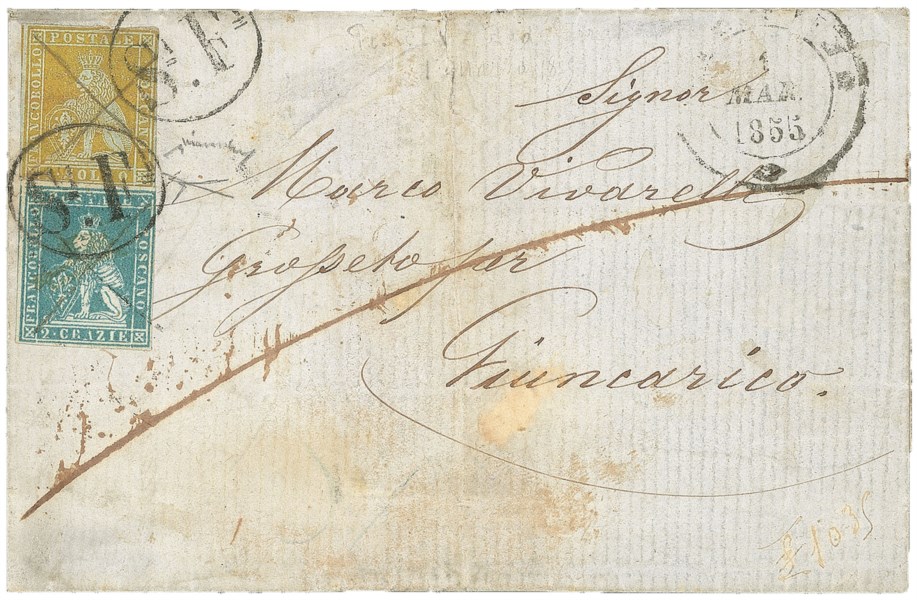 FRANCOBOLLO POSTALE TOSCANO
SOLDO
S.F
S.F
FRANCOBOLLO POSTALE TOSCANO
2·CRAZIE
1
MAR.
1855
Signor
Marco Vivarelli
Grosseto per
Giuncarico.